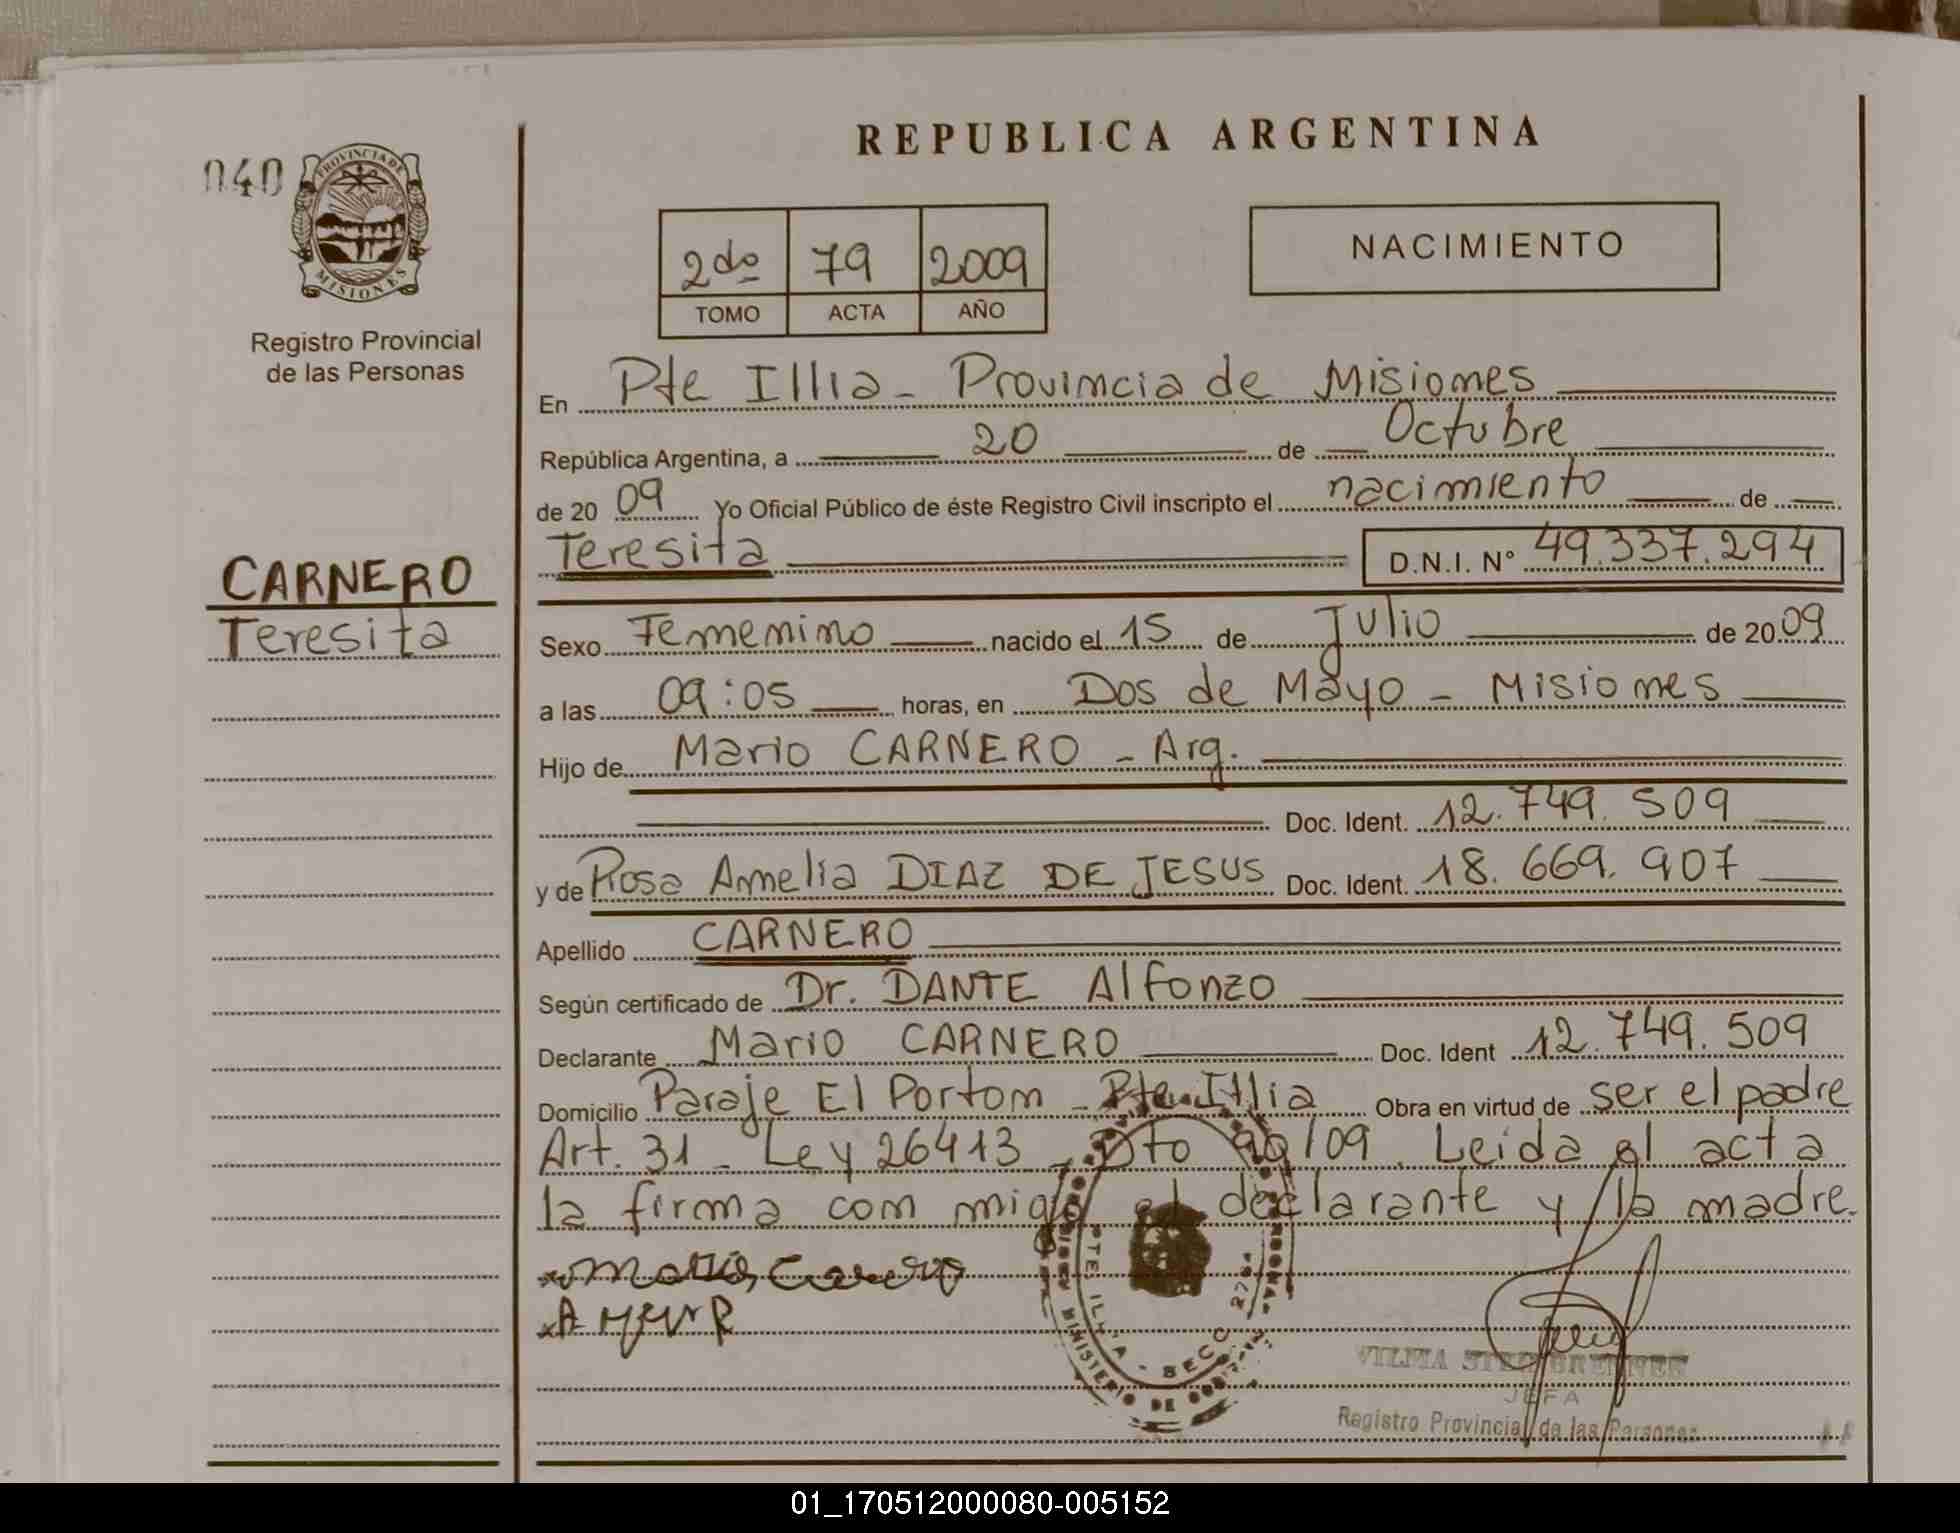 REPUBLICA ARGENTINA
040
PROVINCIA DE
MISIONES
Registro Provincial
de las Personas
2do 79 2009
TOMO ACTA AÑO
NACIMIENTO
En Pte Illia - Provincia de Misiones
República Argentina, a 20 de Octubre
de 20 09 Yo Oficial Público de éste Registro Civil inscripto el nacimiento de
Teresita D.N.I. N° 49.337.294
CARNERO
Teresita
Sexo Femenino nacido el 15 de Julio de 20 09
a las 09:05 horas, en Dos de Mayo - Misiones
Hijo de Mario CARNERO - Arg.
Doc. Ident. 12.749.509
y de Rosa Amelia DIAZ DE JESUS Doc. Ident. 18.669.907
Apellido CARNERO
Según certificado de Dr. DANTE Alfonzo
Declarante Mario CARNERO Doc. Ident 12.749.509
Domicilio Paraje El Porton - Pte Illia Obra en virtud de ser el padre
Art. 31 - Ley 26413 - Dto 90/09. Leida el acta
la firma con migo el declarante y la madre.
PTE. ILLIA - SECC
MINISTERIO DE
VILMA
JEFA
Registro Provincial de las Personas
01_170512000080-005152